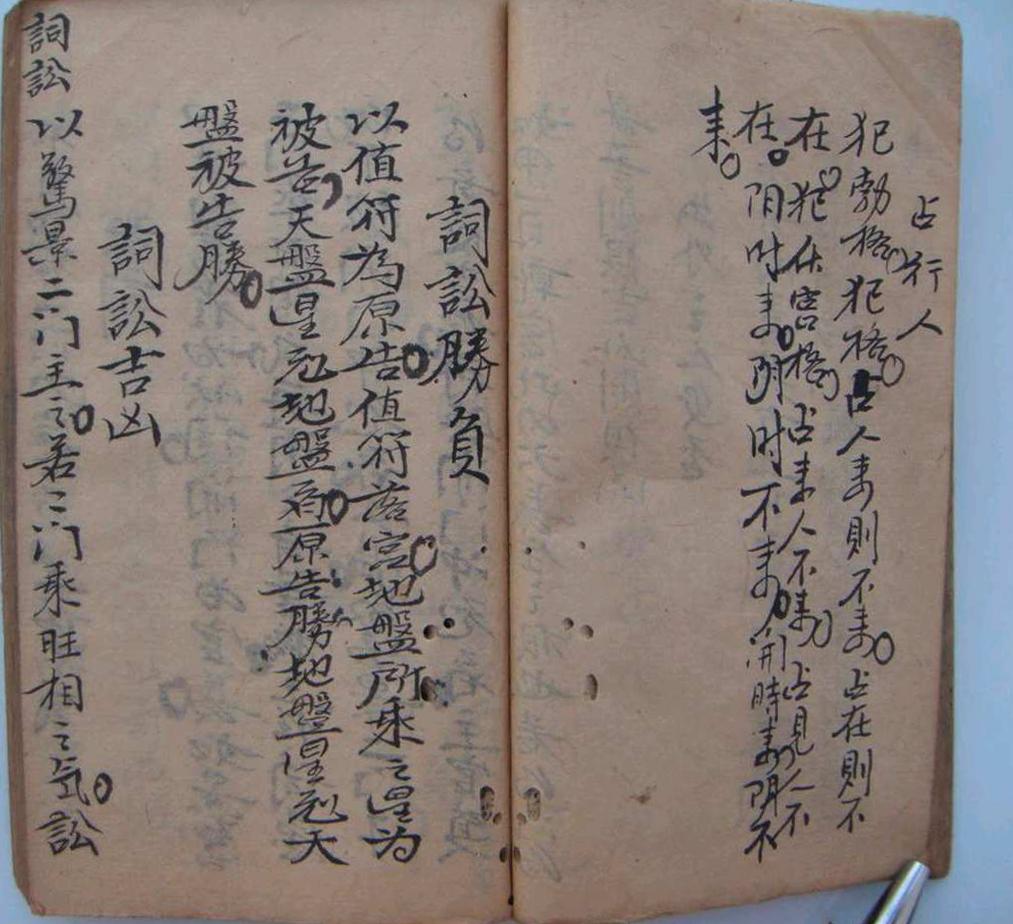 占行人
犯勃格犯格占人来則不来占在則不
在犯伏宫格占来人不来占見人不
在阴时来阴时不来開時来阴不
来
詞訟勝負
以值符為原告值符落宫地盤所乘之星为
被告天盤星克地盤者原告勝地盤星克天
盤被告勝
詞訟吉凶
詞訟
以驚景二门主之若二门乘旺相之氣訟